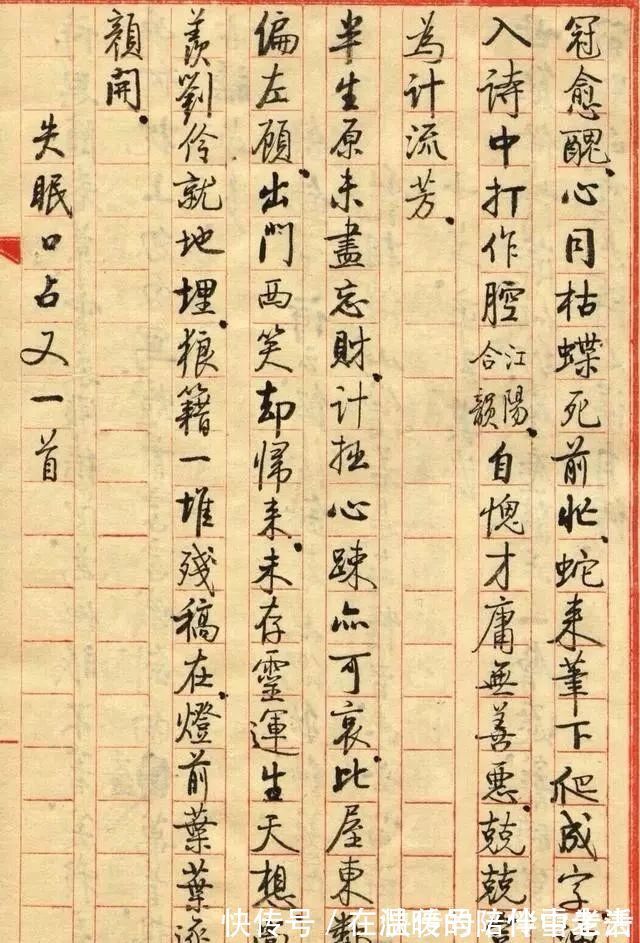 冠愈醜心同枯蝶死前忙蛇来筆下爬成字
入詩中打作腔江陽合韻自愧才庸無善惡兢兢
為計流芳
半生原未盡忘財計拙心疎亦可哀比屋東鄰
偏左顧出門西笑却歸来未存靈運生天想
羨劉伶就地埋狼籍一堆殘稿在燈前葉葉逐
顏開
失眠口占又一首
快传号/在